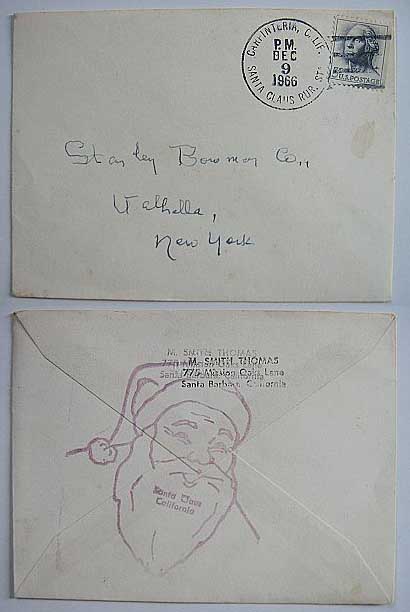 CARPINTERIA, CALIF.
P.M.
DEC
9
1966
SANTA CLAUS RUR. STA.
U.S. POSTAGE
Stanley Bowmar Co.,
Valhalla,
New York
M. SMITH THOMAS
M. SMITH THOMAS
775 Mission Oaks Lane
Santa Barbara, California
Santa Barbara, California
Santa Claus
California